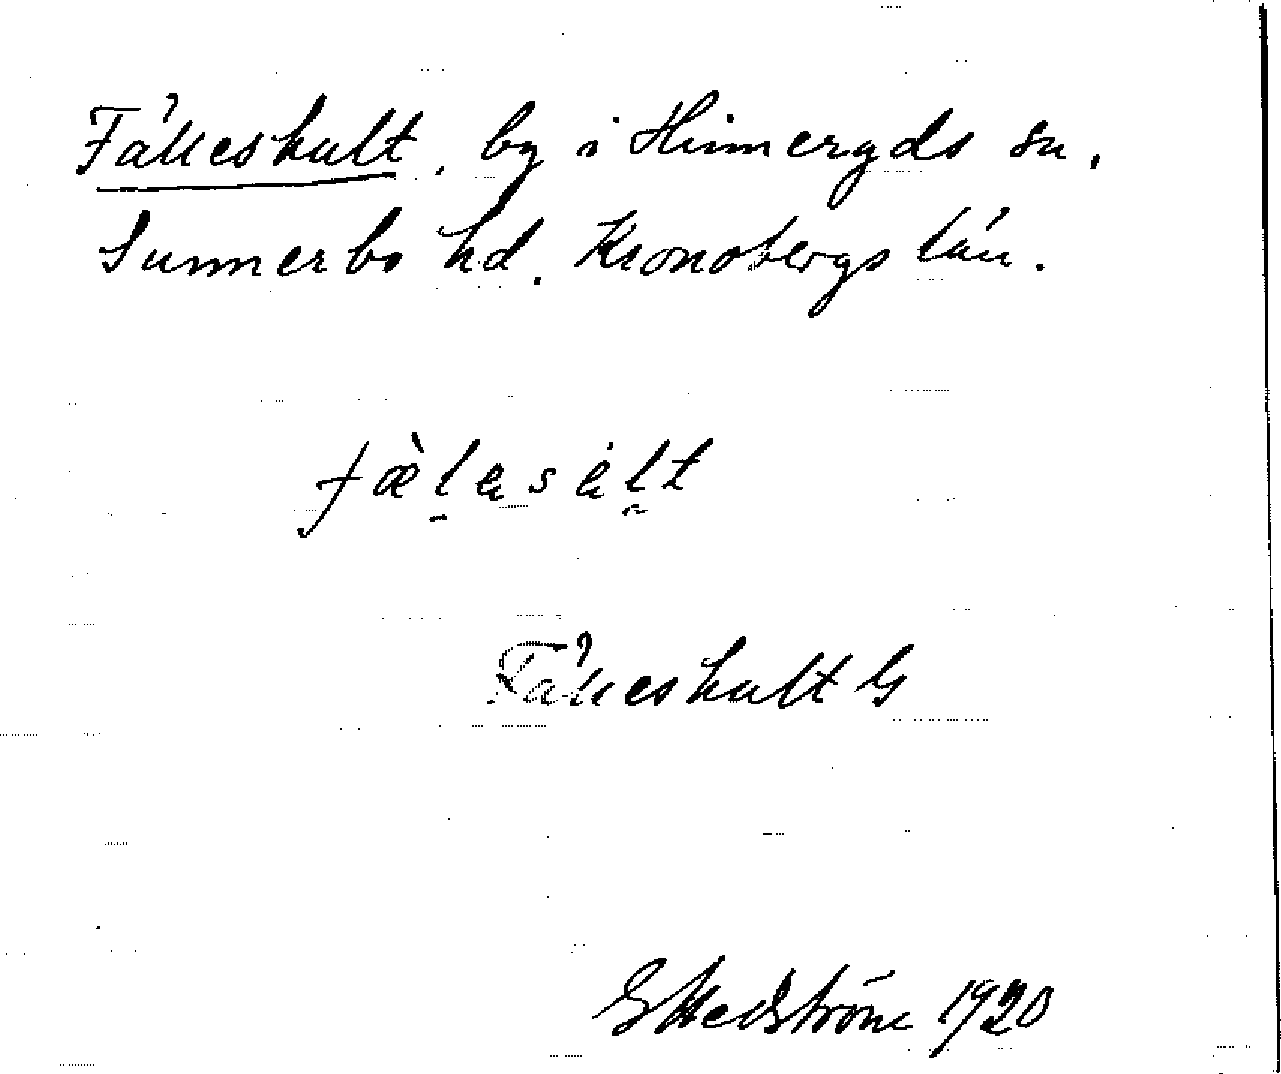 Fälleshult, by i Hinneryds sn,
Sunnerbo hd. Kronobergs län.
fæ̀l̠əsəl̯t
Fälleshult G
G Hedström 1920